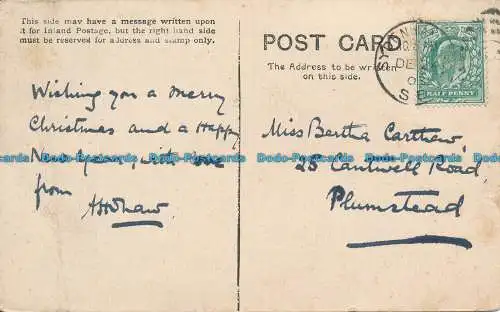 This side may have a message written upon
it for Inland Postage, but the right hand side
must be reserved for address and stamp only.
POST CARD
The Address to be written
on this side.
HALF PENNY
SYDENHAM
DE
S.E.
Wishing you a merry
Christmas and a Happy
New Year, with love
from
Miss Bertha Carthew,
25 Cantwell Road,
Plumstead
Dodo-Postcards Dodo-Postcards Dodo-Postcards Dodo-Postcards Dodo-Postcards